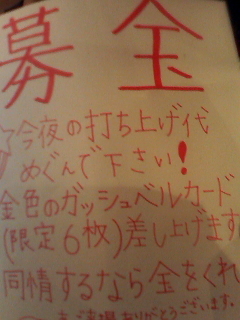 募金
今夜の打ち上げ代
めぐんで下さい!
金色のガッシュベルカード
(限定6枚)差し上げます
同情するなら金をくれ
ありがとうございます。